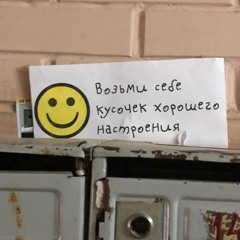 Возьми себе
кусочек хорошего
настроения